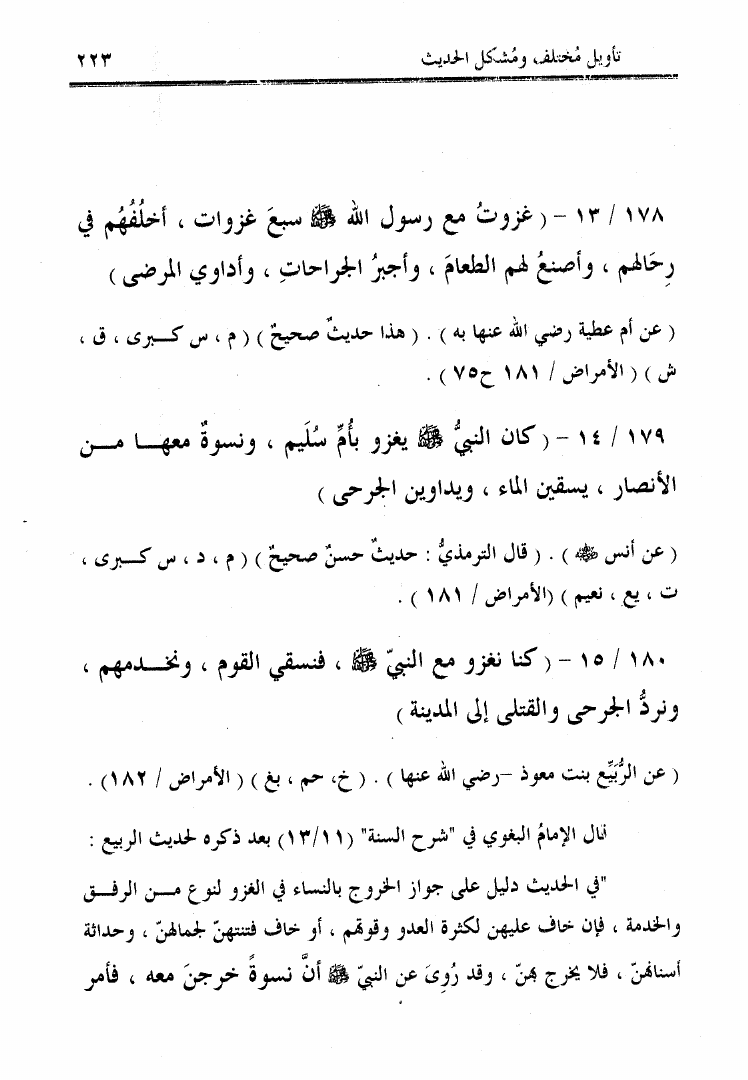 تأويل مُختلف، ومُشكل الحديث ٢٢٣
١٧٨ / ١٣ – ( غزوتُ مع رسول الله ﷺ سبعَ غزوات ، أخلُفُهُم في
رِحَالهم ، وأصنعُ لهم الطعامَ ، وأجبرُ الجراحاتِ ، وأداوي المرضى )
( عن أم عطية رضي الله عنها به ) . ( هذا حديثٌ صحيحٌ ) ( م ، س كبرى ، ق ،
ش ) ( الأمراض / ١٨١ ح٧٥ ) .
١٧٩ / ١٤ – ( كان النبيُّ ﷺ يغزو بأُمِّ سُلَيم ، ونسوةٌ معها من
الأنصار ، يسقين الماء ، ويداوين الجرحى )
( عن أنس ﷺ ) . ( قال الترمذيُّ : حديثٌ حسنٌ صحيحٌ ) ( م ، د ، س كبرى ،
ت ، يع ، نعيم ) (الأمراض / ١٨١ ) .
١٨٠ / ١٥ – ( كنا نغزو مع النبيّ ﷺ ، فنسقي القوم ، ونخدمهم ،
ونردُّ الجرحى والقتلى إلى المدينة )
( عن الرُّبَيِّع بنت معوذ –رضي الله عنها ) . ( خ، حم ، بغ ) ( الأمراض / ١٨٢) .
قال الإمامُ البغوي في "شرح السنة" (١٣/١١) بعد ذكره لحديث الربيع :
"في الحديث دليل على جواز الخروج بالنساء في الغزو لنوع من الرفق
والخدمة ، فإن خاف عليهن لكثرة العدو وقوتهم ، أو خاف فتنتهنّ لجمالهنّ ، وحداثة
أسنانهنّ ، فلا يخرج بهنّ ، وقد رُوِىَ عن النبيّ ﷺ أنَّ نسوةً خرجنَ معه ، فأمر